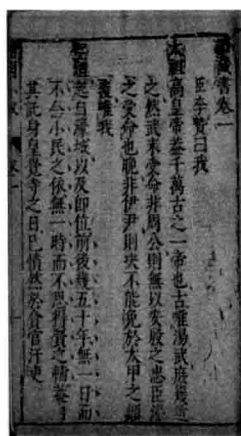 續藏書卷一
臣李贄曰我
太祖高皇帝蓋千萬古之一帝也古唯湯武庶幾近
之然武末受命非周公則無以安殷之忠臣湯
之受命也晚非伊尹則決不能免於太甲之顛
覆唯我
聖祖起自濠城以及即位前後幾五十年無一日而
不念小民之依無一時而不思得賢之輔蓋自
其託身皇覺寺之日已憤然於貪官汙吏